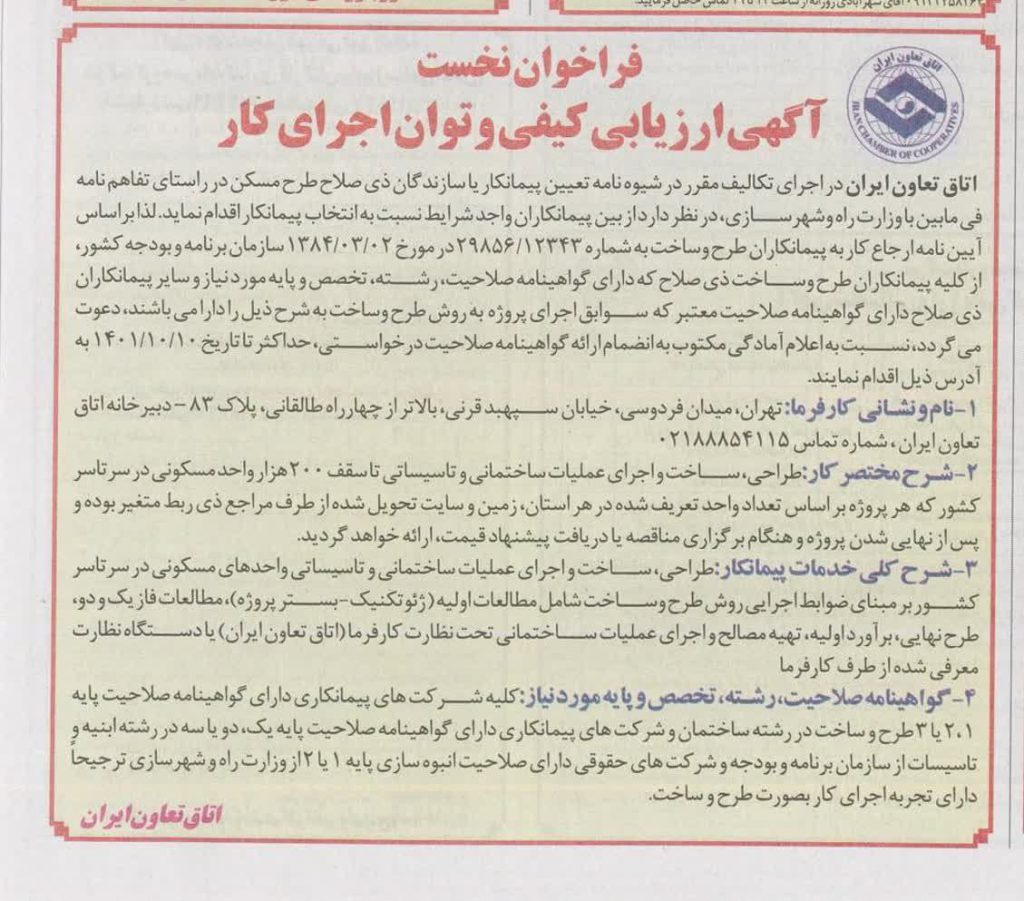 آقای شهرآبادی روزانه از ساعت
تماس حاصل فرمایید.
اتاق تعاون ایران
IRAN CHAMBER OF COOPERATIVES
فراخوان نخست
آگهی ارزیابی کیفی و توان اجرای کار
اتاق تعاون ایران در اجرای تکالیف مقرر در شیوه نامه تعیین پیمانکار یا سازندگان ذی صلاح طرح مسکن در راستای تفاهم نامه
فی مابین با وزارت راه و شهرسازی، در نظر دارد از بین پیمانکاران واجد شرایط نسبت به انتخاب پیمانکار اقدام نماید. لذا بر اساس
آیین نامه ارجاع کار به پیمانکاران طرح و ساخت به شماره ۲۹۸۵۶/۱۲۳۴۳ در مورخ ۱۳۸۴/۰۳/۰۲ سازمان برنامه و بودجه کشور،
از کلیه پیمانکاران طرح و ساخت ذی صلاح که دارای گواهینامه صلاحیت، رشته، تخصص و پایه مورد نیاز و سایر پیمانکاران
ذی صلاح دارای گواهینامه صلاحیت معتبر که سوابق اجرای پروژه به روش طرح و ساخت به شرح ذیل را دارا می باشند، دعوت
می گردد، نسبت به اعلام آمادگی مکتوب به انضمام ارائه گواهینامه صلاحیت درخواستی، حداکثر تا تاریخ ۱۴۰۱/۱۰/۱۰ به
آدرس ذیل اقدام نمایند.
۱- نام و نشانی کارفرما: تهران، میدان فردوسی، خیابان سپهبد قرنی، بالاتر از چهارراه طالقانی، پلاک ۸۳ – دبیرخانه اتاق
تعاون ایران، شماره تماس ۰۲۱۸۸۸۵۴۱۱۵
۲- شرح مختصر کار: طراحی، ساخت و اجرای عملیات ساختمانی و تاسیساتی تا سقف ۲۰۰ هزار واحد مسکونی در سرتاسر
کشور که هر پروژه بر اساس تعداد واحد تعریف شده در هر استان، زمین و سایت تحویل شده از طرف مراجع ذی ربط متغیر بوده و
پس از نهایی شدن پروژه و هنگام برگزاری مناقصه یا دریافت پیشنهاد قیمت، ارائه خواهد گردید.
۳- شرح کلی خدمات پیمانکار: طراحی، ساخت و اجرای عملیات ساختمانی و تاسیساتی واحدهای مسکونی در سرتاسر
کشور بر مبنای ضوابط اجرایی روش طرح و ساخت شامل مطالعات اولیه (ژئوتکنیک-بستر پروژه)، مطالعات فاز یک و دو،
طرح نهایی، برآورد اولیه، تهیه مصالح و اجرای عملیات ساختمانی تحت نظارت کارفرما (اتاق تعاون ایران) یا دستگاه نظارت
معرفی شده از طرف کارفرما
۴- گواهینامه صلاحیت، رشته، تخصص و پایه مورد نیاز: کلیه شرکت های پیمانکاری دارای گواهینامه صلاحیت پایه
۲،۱ یا ۳ طرح و ساخت در رشته ساختمان و شرکت های پیمانکاری دارای گواهینامه صلاحیت پایه یک، دو یا سه در رشته ابنیه و
تاسیسات از سازمان برنامه و بودجه و شرکت های حقوقی دارای صلاحیت انبوه سازی پایه ۱ یا ۲ از وزارت راه و شهرسازی ترجیحاً
دارای تجربه اجرای کار بصورت طرح و ساخت.
اتاق تعاون ایران